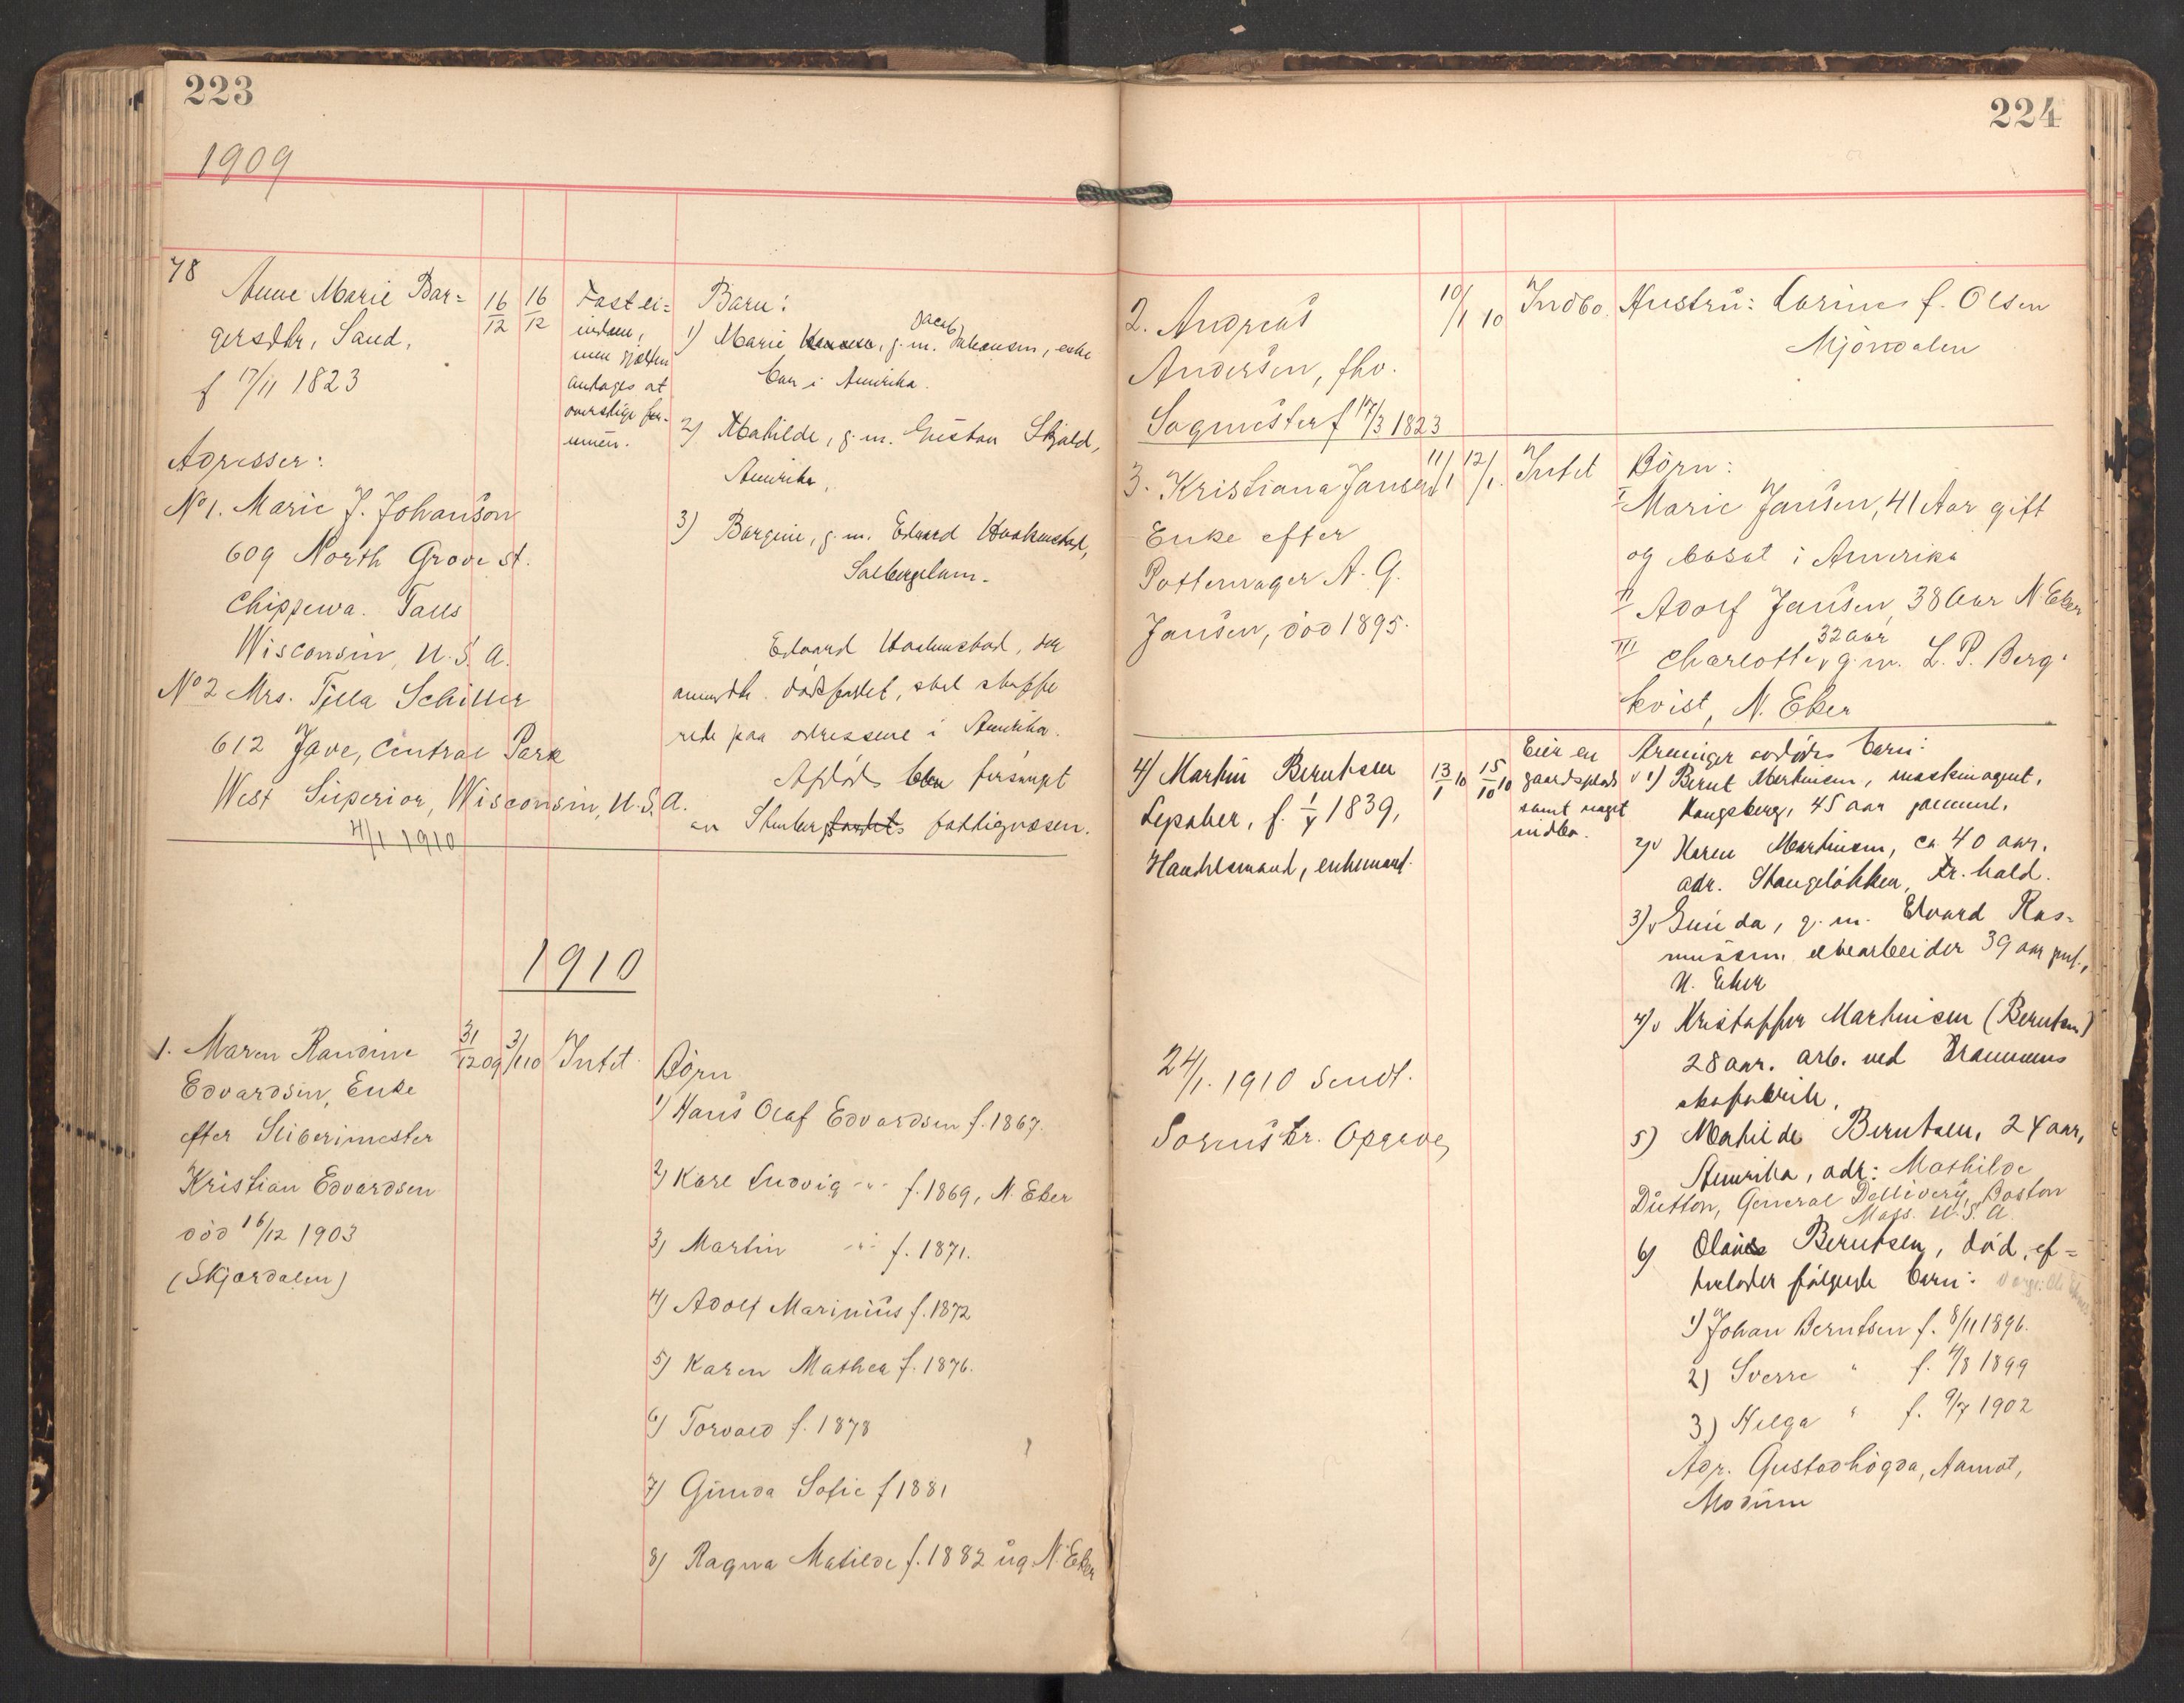 223
1909
78
Anne Marie Bar=
gersdtr, Sand,
f 17/11 1823
Adresser:
No 1. Marie J. Johanson
609 North Grove st.
Chippewa. Falls
Wisconsin, U.S.A.
No 2 Mrs. Tilla Schiller
612 Jave, Central Park
West Superior, Wisconsin, U.S.A.
4/1 1910
16/12
16/12
Fast ei=
endom,
men gjælden
antages at
overstige for-
muen.
Barn:
1) Marie, g.m. Jacob Johansen,
bor i Amerika.
2) Mathilde, g.m. Gustav Skjold,
Amerika,
3) Borgine, g.m. Edvard
Edvard, der
anmeldte dødsfaldet, skal skaffe
rede paa adressene i Amerika.
Afdøde blev forsørget
av fattigvæsen.
1910
1. Maren Randine
Edvardsen, Enke
efter Sliberimester
Kristian Edvardsen
død 16/12 1903
(Skjærdalen)
31/12 09
3/1 10
Intet
Børn
1) Hans Olaf Edvardsen f. 1867.
2) Karl Ludvig -"- f. 1869, N. Eker
3) Martin -"- f. 1871.
4) Adolf Marinius f. 1872
5) Karen Mathea f. 1876.
6) Torvald f. 1878
7) Gunda Sofie f 1881
8) Ragna Matilde f. 1882 ug. N. Eker
224
2. Andreas
Andersen, fhv.
Sagmester f 17/3 1823
10/1 10
Indbo.
Hustru: Karine f. Olsen
Mjøndalen
3. Kristiana Jansen
Enke efter
Pottemager A. G.
Jansen, død 1895.
11/1
12/1.
Intet
Børn:
I Marie Jansen, 41 Aar gift
og bosat i Amerika
II Adolf Jansen, 38 Aar N. Eker
32 aar
III Charlotte, g.m. L. P. Berg-
kvist, N. Eker
4) Martin Berntsen
f. 1/4 1839,
Handelsmand, enkemand.
13/1 10
15/10 10
Eier en
gaardsplads
samt noget
indbo.
barn:
1) Bernt Martinsen, maskinagent,
Kongsberg, 45 aar gammel.
2) Karen Martinsen, ca 40 aar.
adr. Stangeløkken,
3) Gunda, g.m. Edvard Ras-
mussen, 39 aar gml.,
N. Eker
4) Kristoffer Martinsen (Berntsen)
28 aar. arb. ved Drammens
skofabrik.
5) Mathilde Berntsen, 24 aar,
Amerika, adr: Mathilde
Dutton, General Dellivery, Boston
Mass. U.S.A.
6) Berntsen, død, ef-
terlader følgende barn:
1) Johan Berntsen f. 8/11 1896.
2) Sverre " f. 4/8 1899
3) Helga " f. 9/7 1902
Adr. Gustadhøgda, Aamot,
Modum
24/1. 1910 Sendt.
Sorenskr. Opgave